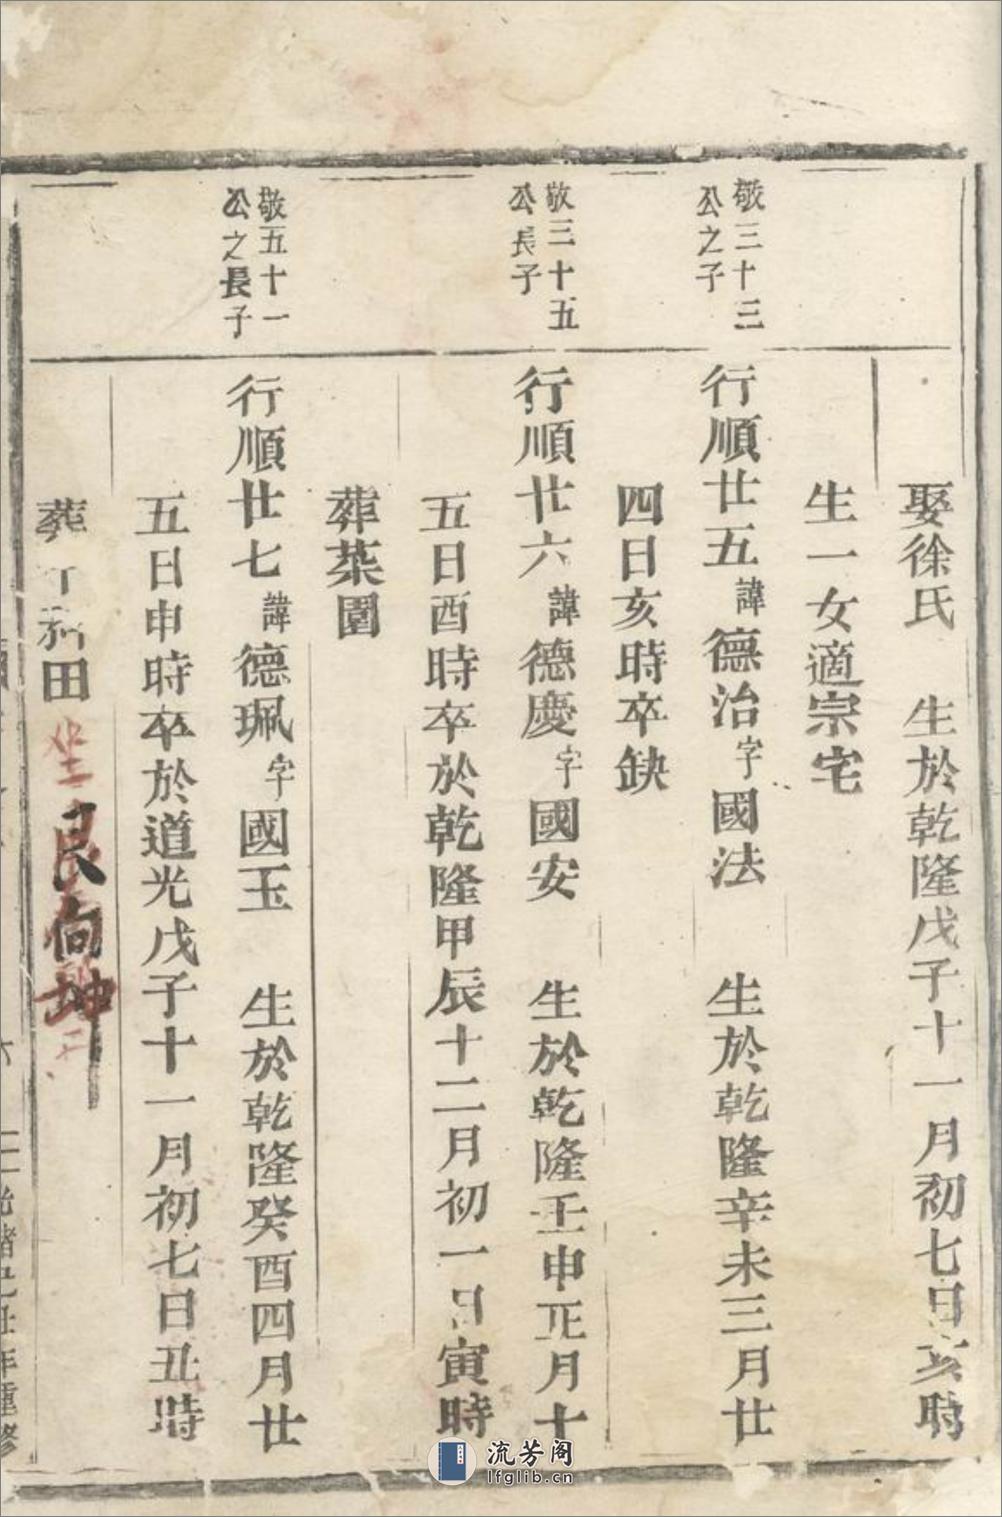 娶徐氏 生於乾隆戊子十一月初七日亥時
生一女適宗宅
敬三十三
公之子
行順廿五諱德治字國法 生於乾隆辛未三月廿
四日亥時卒缺
敬三十五
公長子
行順廿六諱德慶字國安 生於乾隆壬申正月十
五日酉時卒於乾隆甲辰十二月初一日寅時
葬菜園
敬五十一
公之長子
行順廿七諱德珮字國玉 生於乾隆癸酉四月廿
五日申時卒於道光戊子十一月初七日丑時
葬丁 田坐艮向坤
年重修
流芳阁
lfglib.cn